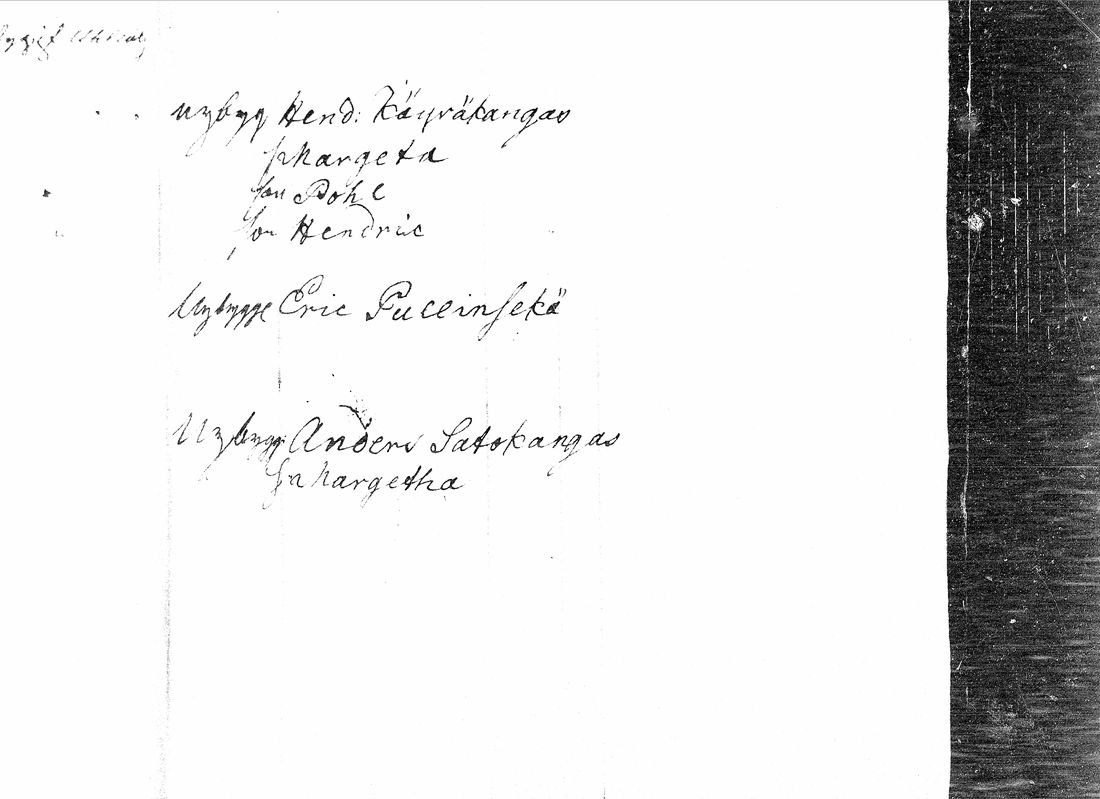 Nybyg Hend: Käyräkangas
h Margeta
son Pohl
son Hendric
Nybygge Eric Puceinsekä
Nybygg Anders Satokangas
h Margetha